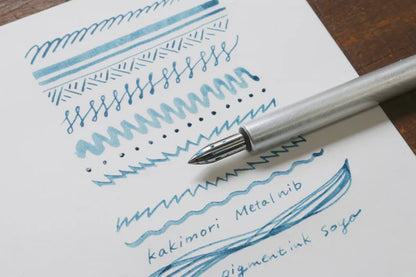 kakimori Metal nib
pigment ink Soyo